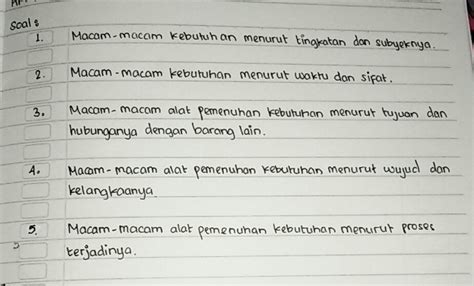 Soal :
1. Macam-macam kebutuhan menurut tingkatan dan subyeknya.
2. Macam-macam kebutuhan menurut waktu dan sifat.
3. Macam-macam alat pemenuhan kebutuhan menurut tujuan dan
hubunganya dengan barang lain.
4. Macam-macam alat pemenuhan kebutuhan menurut wujud dan
kelangkaanya.
5. Macam-macam alat pemenuhan kebutuhan menurut proses
terjadinya.